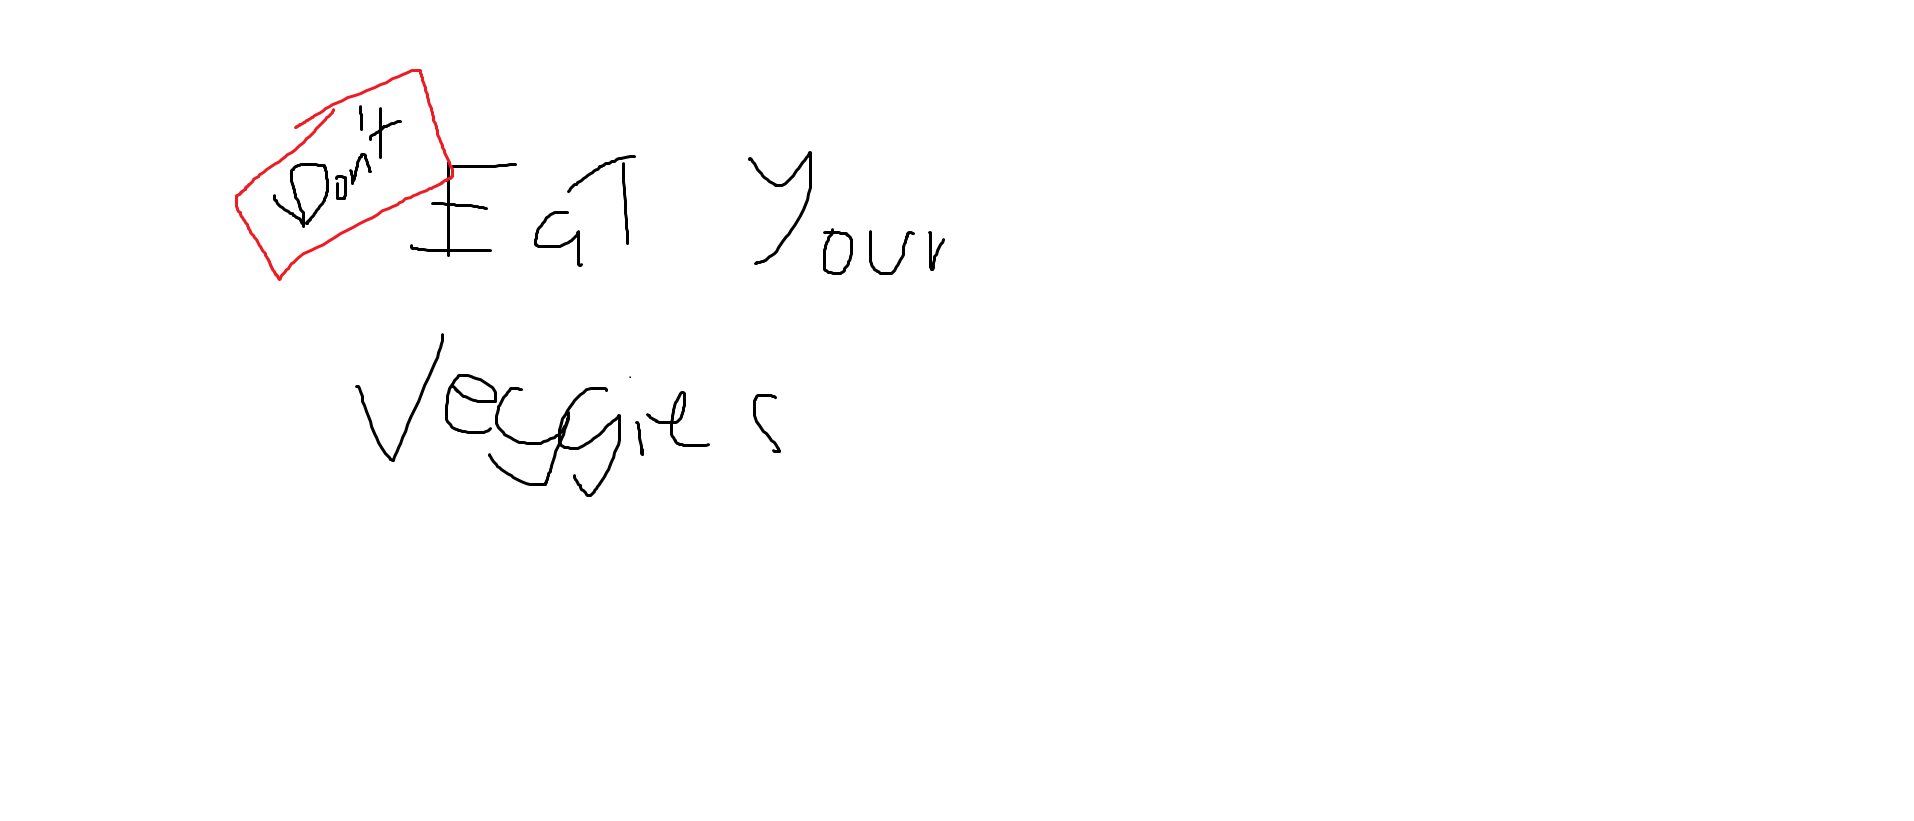 Don't
Eat Your
Veggies